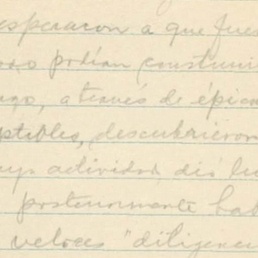 esperaron a que fues
podían construi
ago, a través de épica
ptibles, descubrieron
actividad, dió lu
posteriormente hab
veloces "diligenci